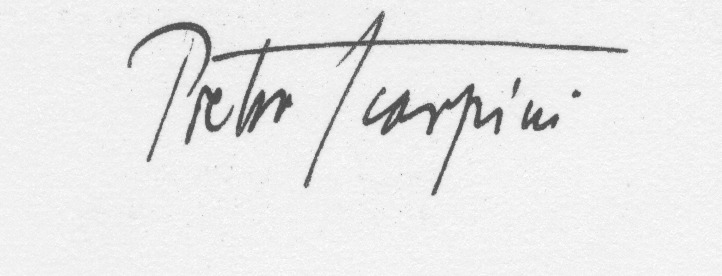 Pietro Scarpini